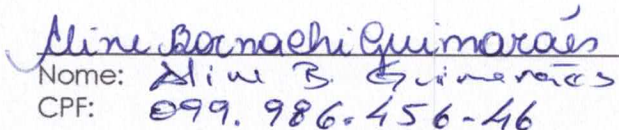 Aline Bornachi Guimarães
Nome: Aline B. Guimarães
CPF: 099.986.456-46